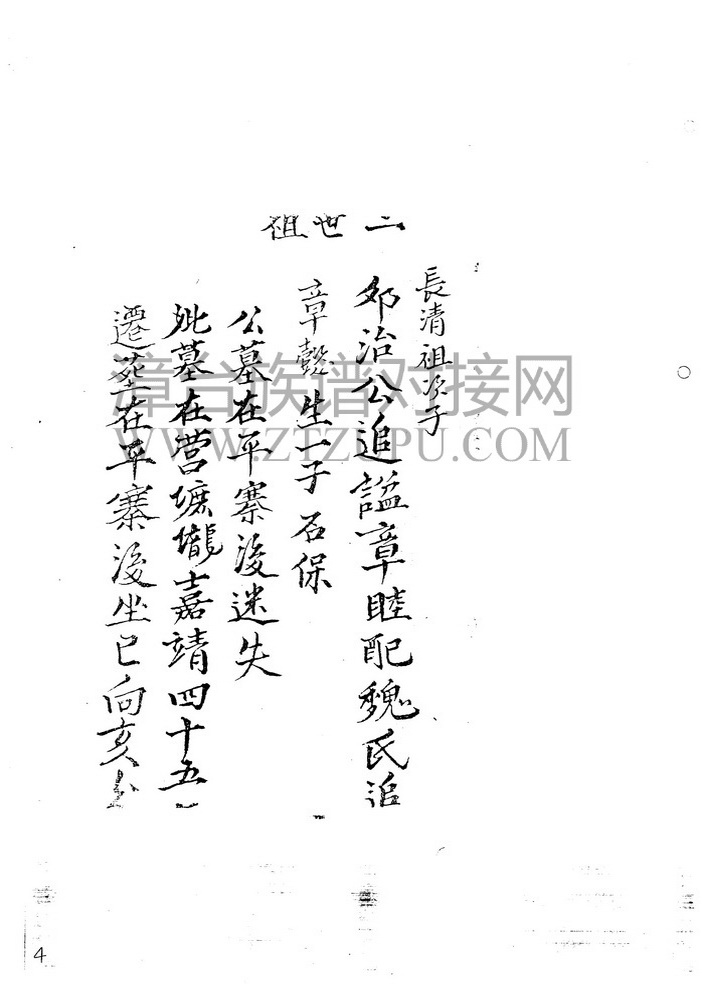 二世祖
長清祖次子
邜治公追謚章睦配魏氏追
章懿生一子石保
公墓在平寨後迷失
妣墓在营壙壠嘉靖四十五
遷葬在平寨後坐巳向亥
漳台族谱对接网
WWW.ZTZUPU.COM
4